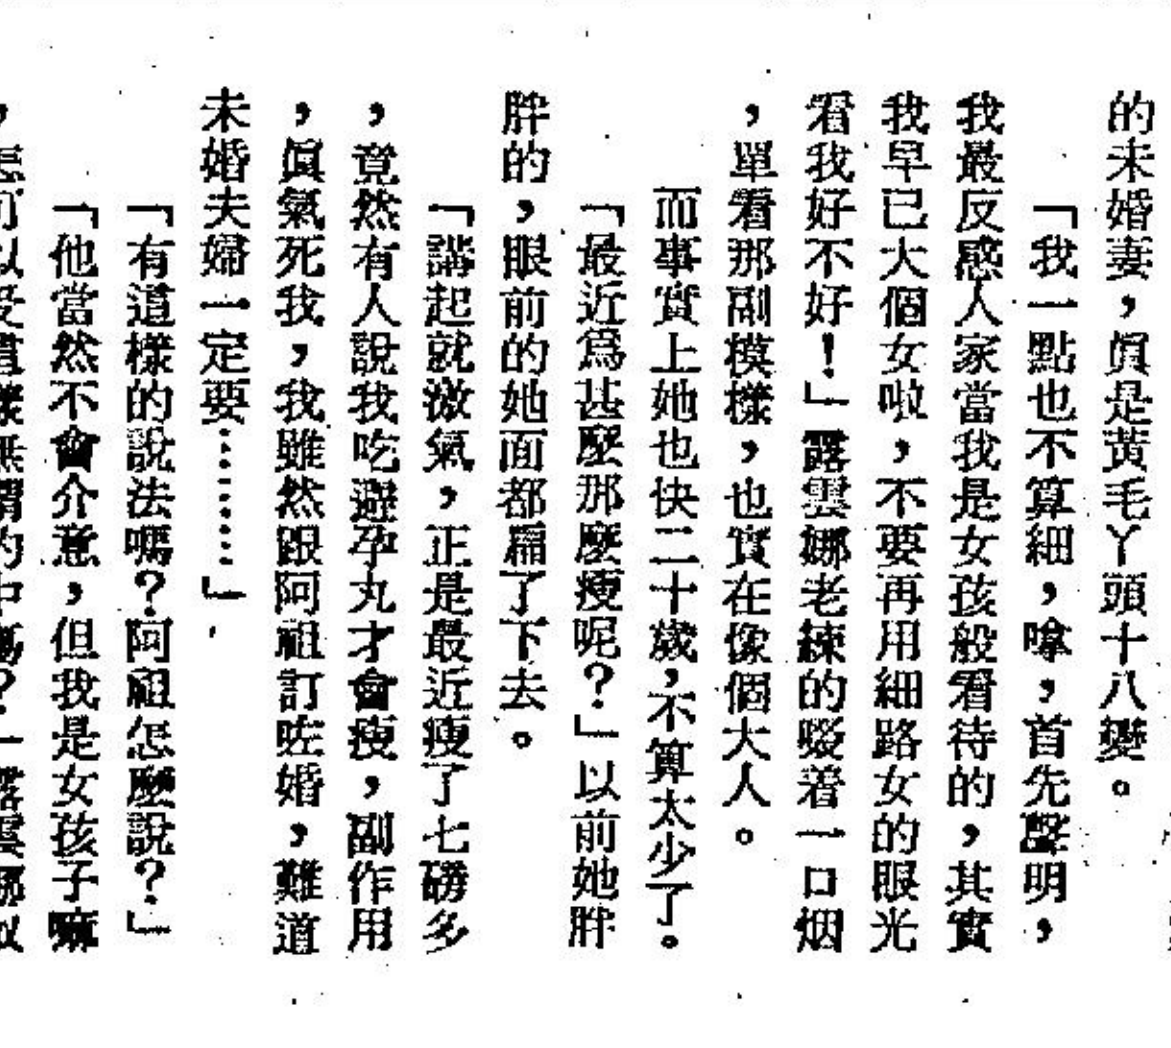 的未婚妻，眞是黃毛丫頭十八變。
「我一點也不算細，嗱，首先聲明，
我最反感人家當我是女孩般看待的，其實
我早已大個女啦，不要再用細路女的眼光
看我好不好！」露雲娜老練的啜着一口烟
，單看那副模樣，也實在像個大人。
而事實上她也快二十歲，不算太少了。
「最近爲甚麼那麼瘦呢？」以前她胖
胖的，眼前的她面都扁了下去。
「講起就激氣，正是最近瘦了七磅多
，竟然有人說我吃避孕丸才會瘦，副作用
，眞氣死我，我雖然跟阿祖訂咗婚，難道
未婚夫婦一定要………」
「有這樣的說法嗎？阿祖怎麼說？」
「他當然不會介意，但我是女孩子嘛
，怎可以受這樣無謂的中傷？」露雲娜